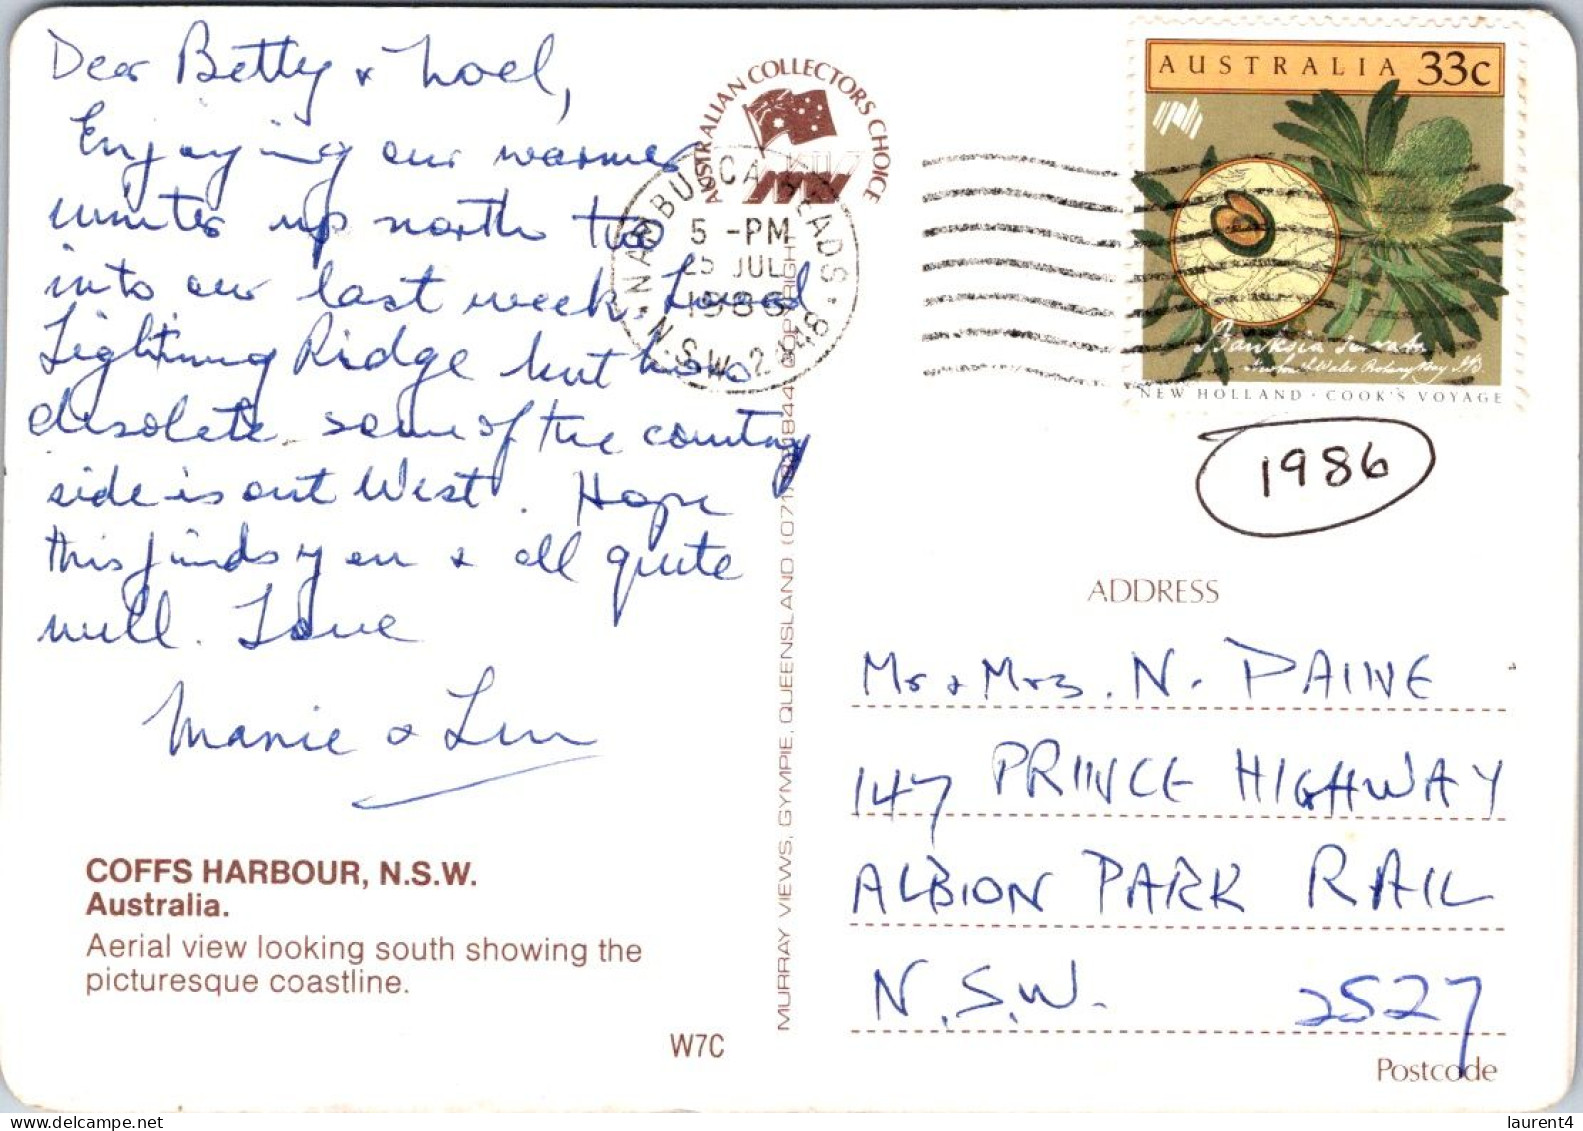 Dear Betty & Noel,
Enjoying our warmer
winter up north two
into our last week. Loved
Lightning Ridge but how
desolate some of the country
side is out West. Hope
this finds you & all quite
well. Love
Marie & Len
COFFS HARBOUR, N.S.W.
Australia.
Aerial view looking south showing the
picturesque coastline.
W7C
AUSTRALIAN COLLECTORS CHOICE
NAMBUCCA HEADS
5 -PM
25 JUL
1986
N.S.W. 2448
MURRAY VIEWS, GYMPIE, QUEENSLAND (071) COPYRIGHT
AUSTRALIA 33c
Banksia serrata
NEW HOLLAND · COOK'S VOYAGE
1986
ADDRESS
Mr & Mrs. N. PAINE
147 PRINCE HIGHWAY
ALBION PARK RAIL
N.S.W. 2527
Postcode
laurent4